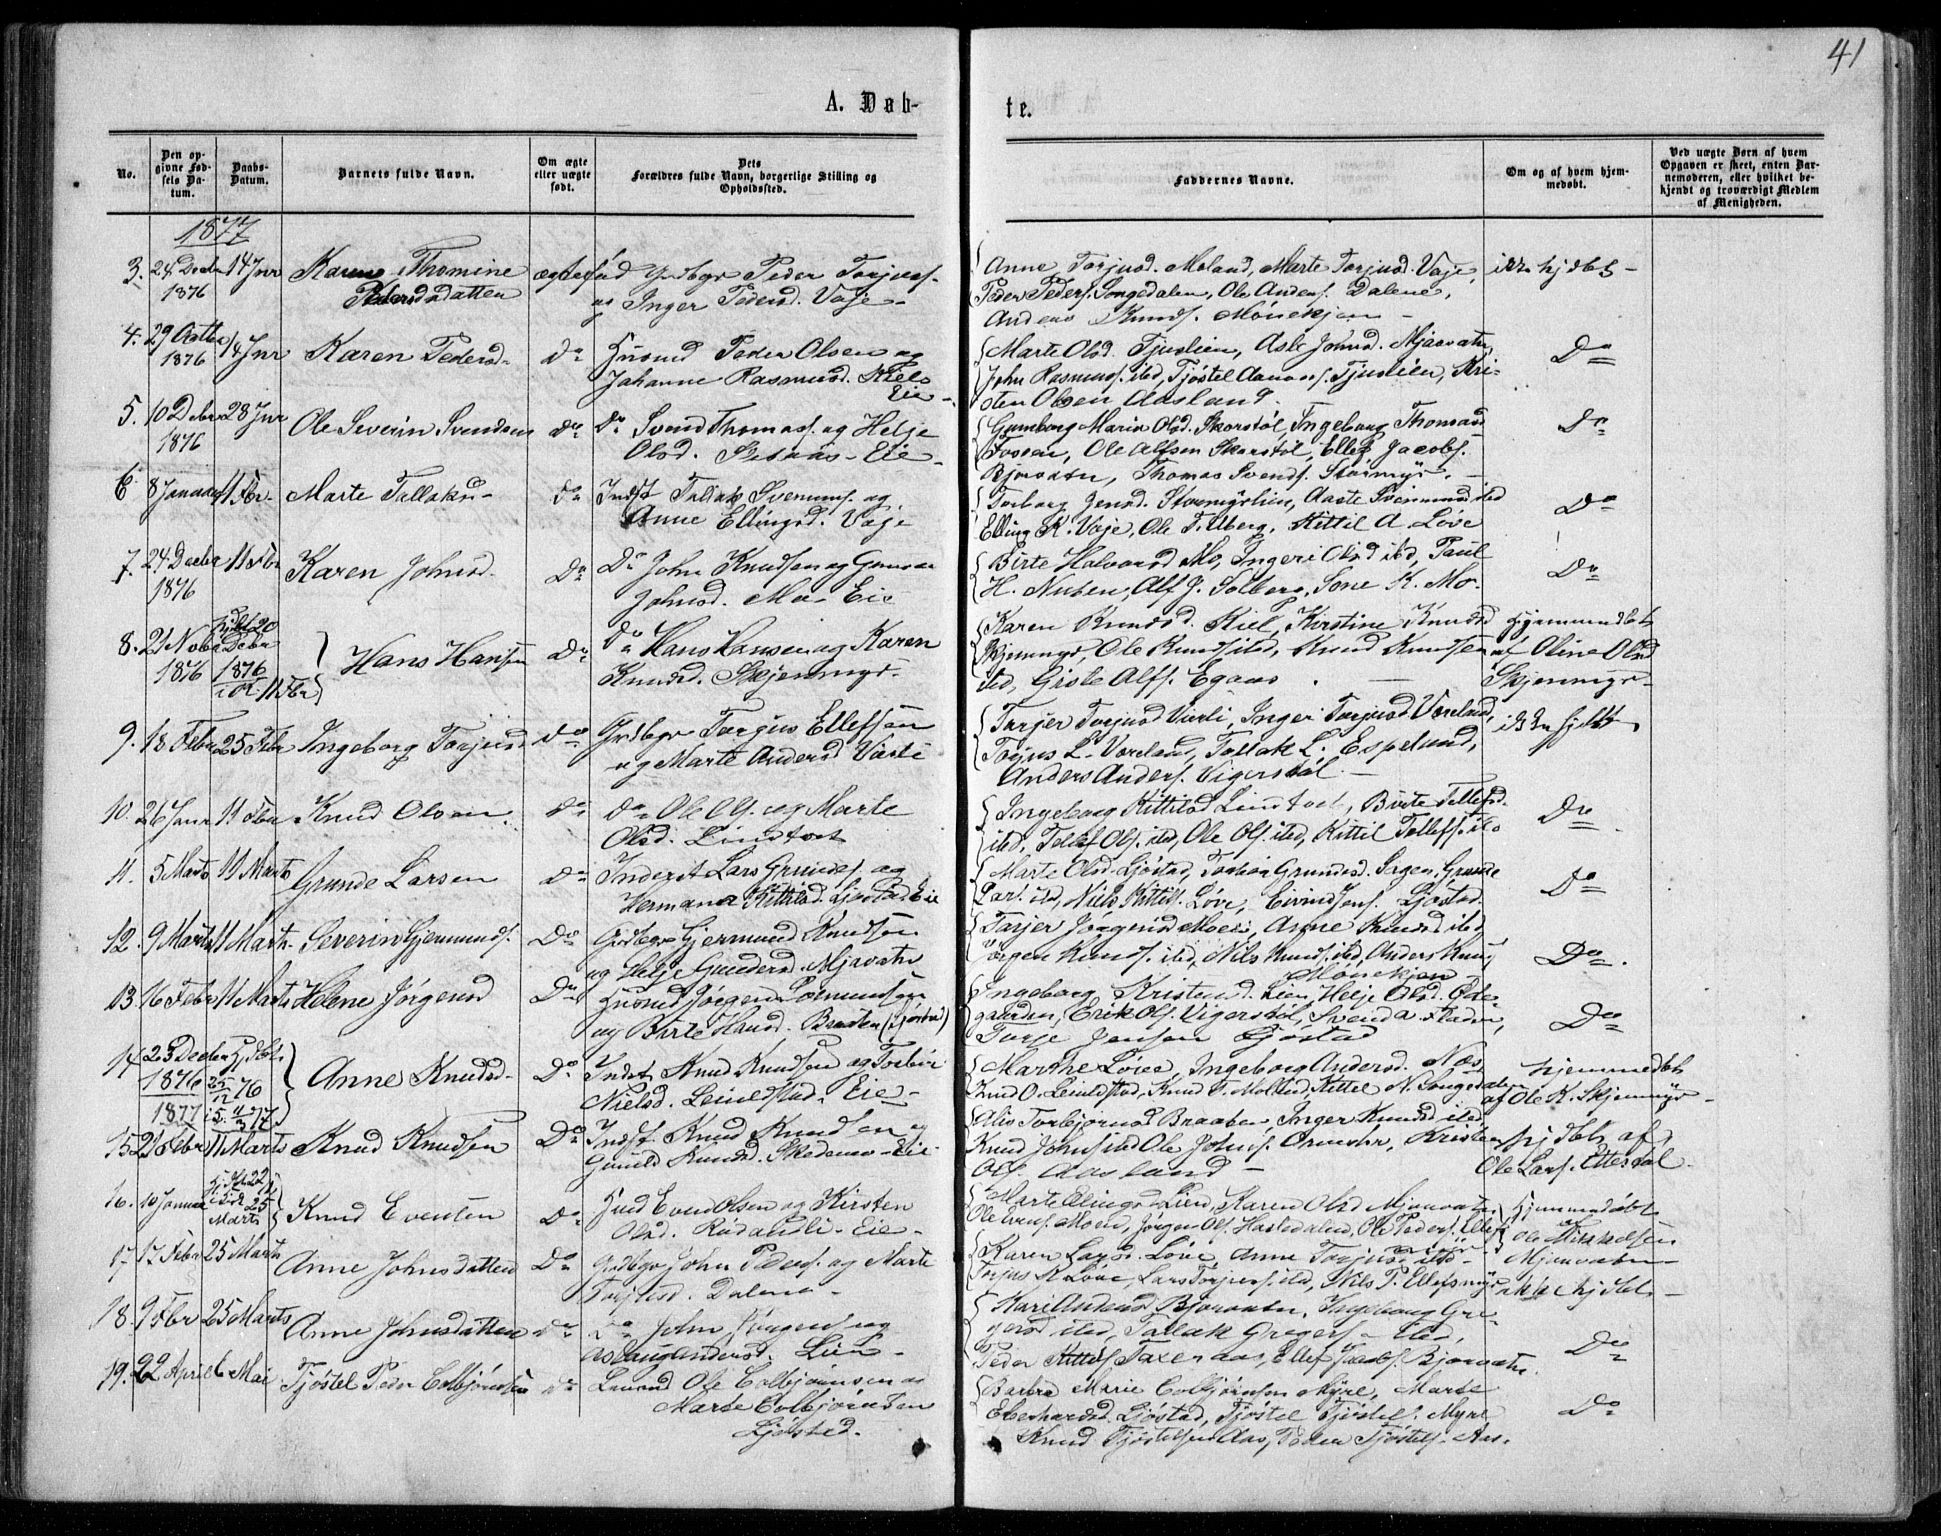 41
A. Døb-
te.
No.
Den op-
givne Fød-
sels Da-
tum.
Daabs-
Datum.
Barnets fulde Navn.
Om ægte
eller uægte
født.
Dets
Forældres fulde Navn, borgerlige Stilling og
Opholdssted.
Faddernes Navne.
Om og af hvem hjem-
medøbt.
Ved uægte Børn af hvem
Opgaven er skeet, enten Bar-
nemoderen, eller hvilket be-
kjendt og troværdigt Medlem
af Menigheden.
1877
3. 24 Decbr 14 Jnr Karen Thomine ægtefød Grdbgr Peder Torjuss.
1876 Pedersdatten og Inger Pedersd. Vaje
Anne Torjusd. Moland, Marte Torjusd. Vaje
Peder Peders. Songedalen, Ole Anders. Dalene,
Anders Knuds. Mönekjen
ikke hjdbt
4. 29 1876 14 Jnr Karen Pedersd. Do Husmd Peder Olsen og
Johanne Rasmusd. Kiels
Eie
Marte Olsd. Tjuslien, Asle Johnsd. Mjaavatn,
John Rasmuss. isted, Tjöstel Aanons. Tjuslien, Kri-
sten Olsen Aasland.
Do
5. 10 Debr 28 Jnr Ole Severin Svendsen do do Svend Thomass. og Helje
1876 Olsd. Eie
Gunborg Maria Olsd. Skorstöl, Ingeborg Thomasd
Fossen, Ole Alfsen Skorstöl, Ellef Jacobs.
Bjorvatn, Thomas Svends. Stormyr.
Do
6 8 Januar 11 Fbr. Marte Tallaksd do Indst Tallak Svenums. og
Anne Ellingsd. Vaje
Torborg Jensd. Stormyrlien, Aaste Svenumsd isted
Elling K. Vaje, Ole T. Uberg, Kittil A Löve
Do
7. 24 Decbr 11 Fbr Karen Johnsd. Do Do John Knudsen og
1876 Johnsd. Mo Eie
Birte Halvorsd Mo, Ingeri Olsd isted, Paul
H. Nuten, Alf J. Solberg, Sone K. Mo.
Do
8. 21 Nobr hjdbt 20
Debr
1876 1876 Hans Hansen do do Hans Hansen og Karen
11 Fbr Knudsd. Skjenmyr.
Karen Knudsd. Kiel, Kirstine Knudsd
Skjenmyr, Ole Knuds isted, Knud Knudsen
isted, Gisle Alfs. Egaas
Hjemmedbt
af Oline Olsd
Skjenmyr
9. 18 Febr 25 Febr Ingeborg Torjusd do Grdbgr Torjus Ellefsen
og Marte Andersd Varli
Torjer Torjusd Varli, Inger Torjusd Væreland,
Torjus L. Væreland, Tallak L. Espelund,
Anders Anders. Vigerstöl.
ikke hjdbt
10. 26 Janr 11 Fbr Knud Olsen do do Ole Ols. og Marte
Olsd. Lindtvet
Ingeborg Kittilsd Lindtvet, Birte Tellefsd.
isted, Tellef Ols. isted, Ole Ols. isted, Kittil Tellefs. isted
Do
11. 5 Marts 11 Marts Grunde Larsen do Inderst Lars Grundes. og
Hermana Kittilsd. Ljöstad Eie
Marte Olsd. Ljöstad, Torbor Grundesd. Grunde
Lars. isted, Niels Kittils. Löve, Eivind Jens. Ljöstad.
Do
12. 9 Marts 11 Marts. Severin Gjermunds. Do Grdbgr Gjermund Knudsen
og Helje Gundersd. Mjavatn
Torjer Jörgensd Moei, Anne Knudsd isted,
Jörgen Knuds. isted, Nils Knuds. isted, Anders Knuds
Mönekjen
Do.
13. 16 Febr 11 Marts Helene Jörgensd Do Husmd Jörgen
og Birte Hansd. Braaten (Ljöstad)
Ingeborg Kristensd. Lien, Helje Olsd. Öde-
gaarden, Erik Ols. Vigerstöl, Svend A. Fladen,
Torje Jensen Ljöstad
Do
14 23 Decbr hjdbt.
1876 25/12 76 Anne Knudsd. Do Indst Knud Knudsen og Torbör
1877 i S. 11/3 77 Nielsd. Leiulstad Eie
Marthe Löve, Ingeborg Andersd. Næs
Knud O. Leiulstad, Knud T. Molsted, Kittel N. Songedal
hjemmedbt
af Ole K. Skjenmyr
15. 21 Fbr 11 Marts Knud Knudsen Do Indst Knud Knudsen og
Gunild Knudsd. Skedsmo Eie
Alis Torbjörnsd Braaten, Inger Knudsd isted
Knud Johns. isted Ole Johns. Kristen
Ols. Aasland
hjdbt af
Ole Lars. Ettestöl
16. 10 Januar hjdbt 22/1
25
Marts Knud Evensen Do Husmd Even Olsen og Kirsten
Olsd. Eie
Marte Elingsd Lien, Karen Olsd Mjaavatn
Ole Evens. Moen, Jörgen Ols. Hastedalen, Ole Peders. Ellefs
myr
Hjemmedöbt
af
Ole Mikkelsen
Mjaavatn
17. 17 Febr 25 Marts Anne Johnsdatten Do Grdbgr John Peders. og Marte
Torjusd. Dalene
Karen Larsd. Löve, Anne Torjusd isted
Torjus K Löve, Lars Torjuss. isted, Nils P. Ellefsmyr
ikke hjdbt
18. 9 Fbr 25 Marts Anne Johnsdatten do do John Jörgens. og
Aslaug Andersd. Lien
Kari Andersd Bjorvatn, Ingeborg Gre-
gersd isted, Tallak Gregers. isted,
Peder Kittels Taxeraas, Ellef Jacobs. Bjorvatn.
Do
19. 22 April 6 Mai Tjöstel Peder Colbjörnsen do Ole Colbjörnsen og
Marte Colbjörnsen
Ljöstad.
Barbra Marie Colbjörnsen Myre, Marte
Eberhardsd. Ljöstad, Tjöstel Tjöstels. Myre
Knud Tjöstelsen Aas, Peder Tjöstels. Aas.
Do